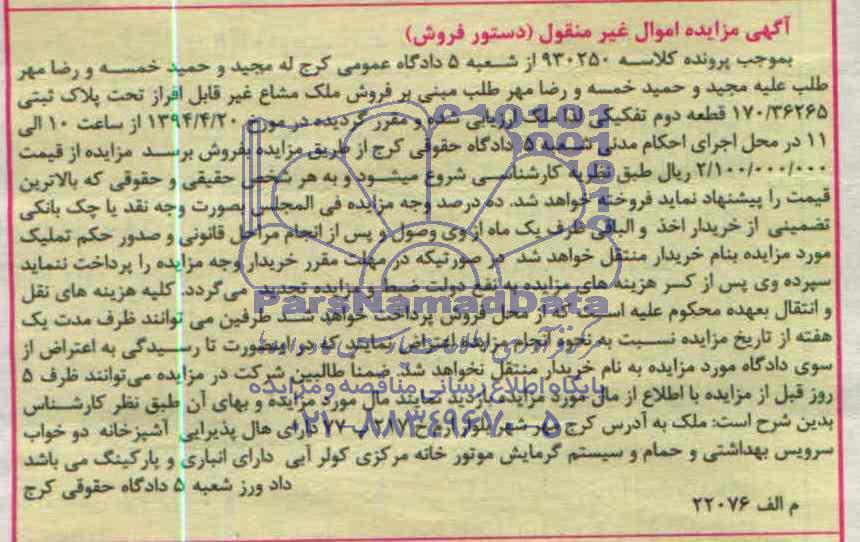 آگهی مزایده اموال غیر منقول (دستور فروش)
بموجب پرونده کلاسه ۹۳۰۲۵۰ از شعبه ۵ دادگاه عمومی کرج له مجید و حمید خمسه و رضا مهر
طلب علیه مجید و حمید خمسه و رضا مهر طلب مبنی بر فروش ملک مشاع غیر قابل افراز تحت پلاک ثبتی
۱۷۰/۳۶۲۶۵ قطعه دوم تفکیکی لذا ملک ارزیابی شده و مقرر گردیده در مورخ ۱۳۹۴/۴/۲۰ از ساعت ۱۰ الی
۱۱ در محل اجرای احکام مدنی شعبه ۵ دادگاه حقوقی کرج از طریق مزایده بفروش برسد مزایده از قیمت
۲/۱۰۰/۰۰۰/۰۰۰ ریال طبق نظریه کارشناسی شروع میشود و به هر شخص حقیقی و حقوقی که بالاترین
قیمت را پیشنهاد نماید فروخته خواهد شد. ده درصد وجه مزایده فی المجلس بصورت وجه نقد یا چک بانکی
تضمینی از خریدار اخذ و الباقی ظرف یک ماه از وی وصول و پس از انجام مراحل قانونی و صدور حکم تملیک
مورد مزایده بنام خریدار منتقل خواهد شد در صورتیکه در مهلت مقرر خریدار وجه مزایده را پرداخت ننماید
سپرده وی پس از کسر هزینه های مزایده به نفع دولت ضبط و مزایده تجدید می گردد. کلیه هزینه های نقل
و انتقال بعهده محکوم علیه است که از محل فروش پرداخت خواهد شد طرفین می توانند ظرف مدت یک
هفته از تاریخ مزایده نسبت به نحوه انجام مزایده اعتراض نمایند که در اینصورت تا رسیدگی به اعتراض از
سوی دادگاه مورد مزایده به نام خریدار منتقل نخواهد شد ضمنا طالبین شرکت در مزایده می‌توانند ظرف ۵
روز قبل از مزایده با اطلاع از مال مورد مزایده بازدید نمایند مال مورد مزایده و بهای آن طبق نظر کارشناس
بدین شرح است: ملک به آدرس کرج مهر شهر بلوار ارم دارای هال پذیرایی آشپزخانه دو خواب
سرویس بهداشتی و حمام و سیستم گرمایش موتور خانه مرکزی کولر آبی دارای انباری و پارکینگ می باشد
داد ورز شعبه ۵ دادگاه حقوقی کرج
م الف ۲۲۰۷۶
ParsNamadData
پایگاه اطلاع رسانی مناقصه و مزایده
۰۲۱-۸۸۳۴۹۶۷۰-۵